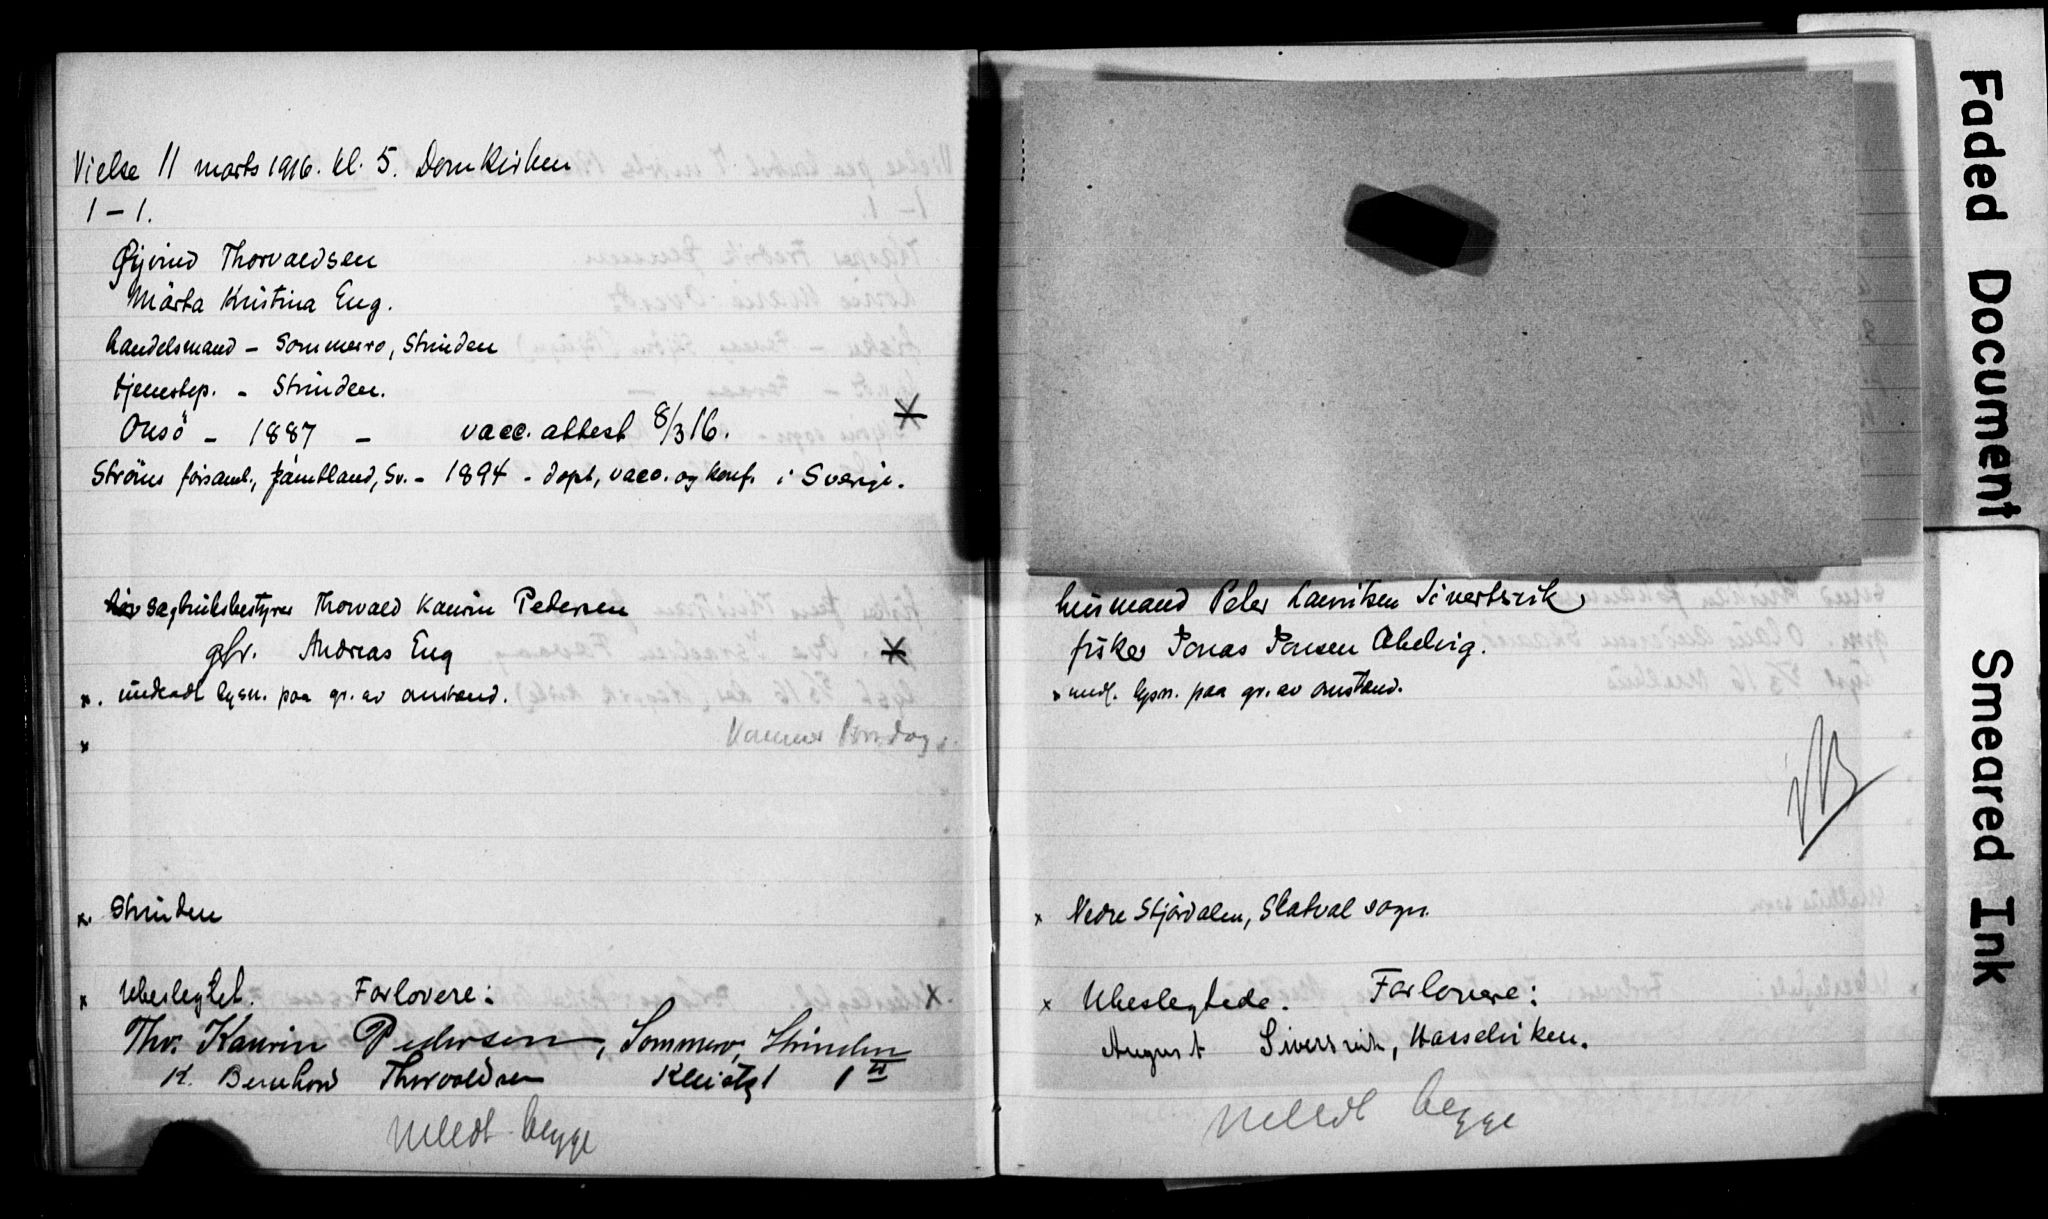 Vielse 11 marts 1916. kl. 5. Domkirken
1 – 1.
Øyvind Thorvaldsen
Märta Kristina Eng.
handelsmand – Sommerro, Strinden
tjenestep. – Strinden.
Onsö – 1887 – vacc. attest 8/3 16.
Ströms församl., Jämtland, Sv. – 1894 – døpt, vacc. og konf. i Sverige.
sagbruksbestyrer Thorvald Kaurin Pedersen
gbr. Andreas Eng
x. undladt lysn. paa gr. av omstænd.
x
x. Strinden
x Ubeslegtet. Forlovere: x.
Thv. Kaurin Pedersen, Sommerro, Strinden
K. Bernhard Thorvaldsen
meldt begge
husmand Peter Lauritsen Sivertsvik
fisker Jonas Jonsen
x undl. lysn. paa gr. av omstænd.
x Nedre Stjørdalen, Skatval sogn.
x Ubeslegtede. Forlovere:
August Siversvik, Hasselviken.
meldt begge
Faded Document
Smeared Ink